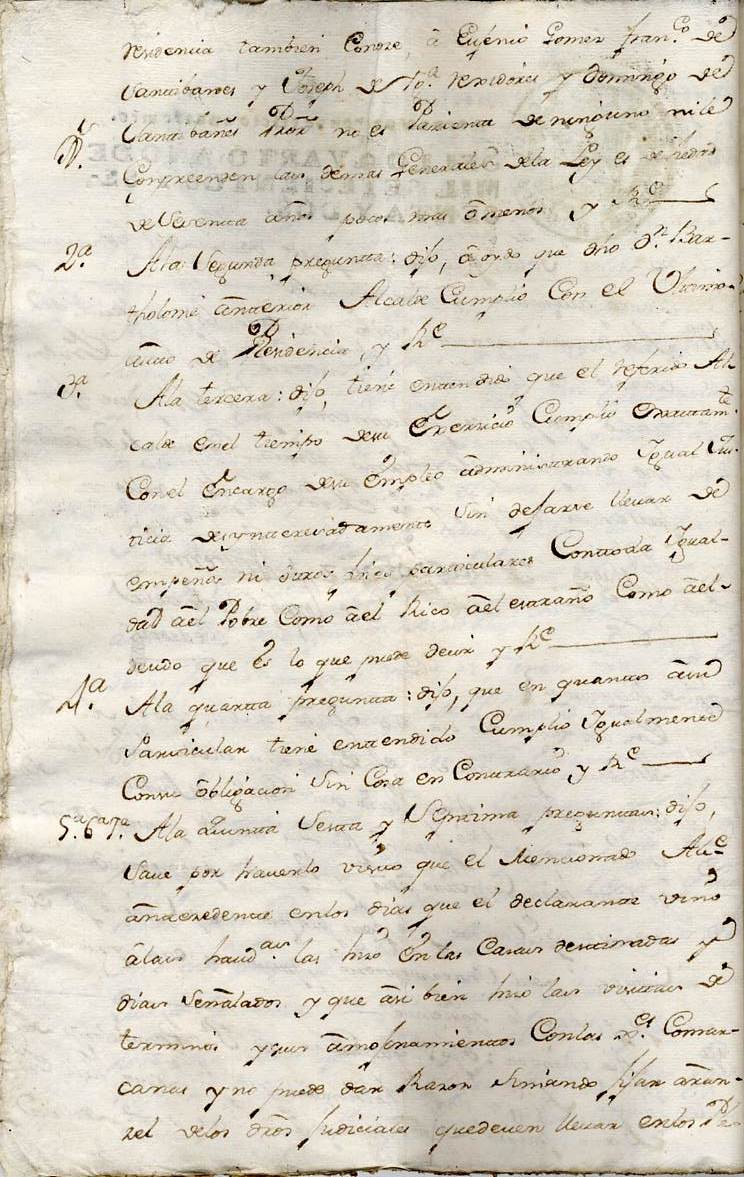 residencia tambien Conoze, â Eugenio Gomez Fran.co de
Santibanes y Joseph de regidores y Domingo de
Santibañes Pror no es Pariente de ninguno ni le
Conpreenden las demas Generales de la Ley es de hedad
de Sesenta años poco mas ô menos y Re
2.a Ala Segunda pregunta: dijo, â oydo que dho Dn Bar-
tholome ânterior Alcalde Cumplio Con el Ultimo
âuto de Residencia, y Re
3.a Ala tercera: dijo, tiene entendido que el referido Al-
calde en el tiempo de su Exerzicio Cumplio exactamte
Con el Encargo de su Empleo âdministrando Igual Jus-
ticia desynteresadamente Sin dejarse llevar de
empeños ni otros fines particulares Con toda Igual-
dad âel Pobre Como âel Rico âel estraño Como âel
deudo que Es lo que puede decir y Re
4.a Ala quarta pregunta: dijo, que en quanto âsu
Particular tiene entendido Cumplio Igualmente
Con su ôbligacion Sin Cosa en Contrario y Re
5.a 6.a 7.a Ala Quinta Sexta y Septima preguntas: dijo,
Save por haverlo visto que el Mencionado Alce
ântezedente en los dias que el declarante vino
âlas haudas las hizo En las Casas destinadas y
dias Señalados y que âsi bien hizo las visitas de
terminos y sus âmojonamientos Con las Comar-
canas y no puede dar Razon Siniendo fijar âran-
zel de los dros Judiciales que deven llevar en los